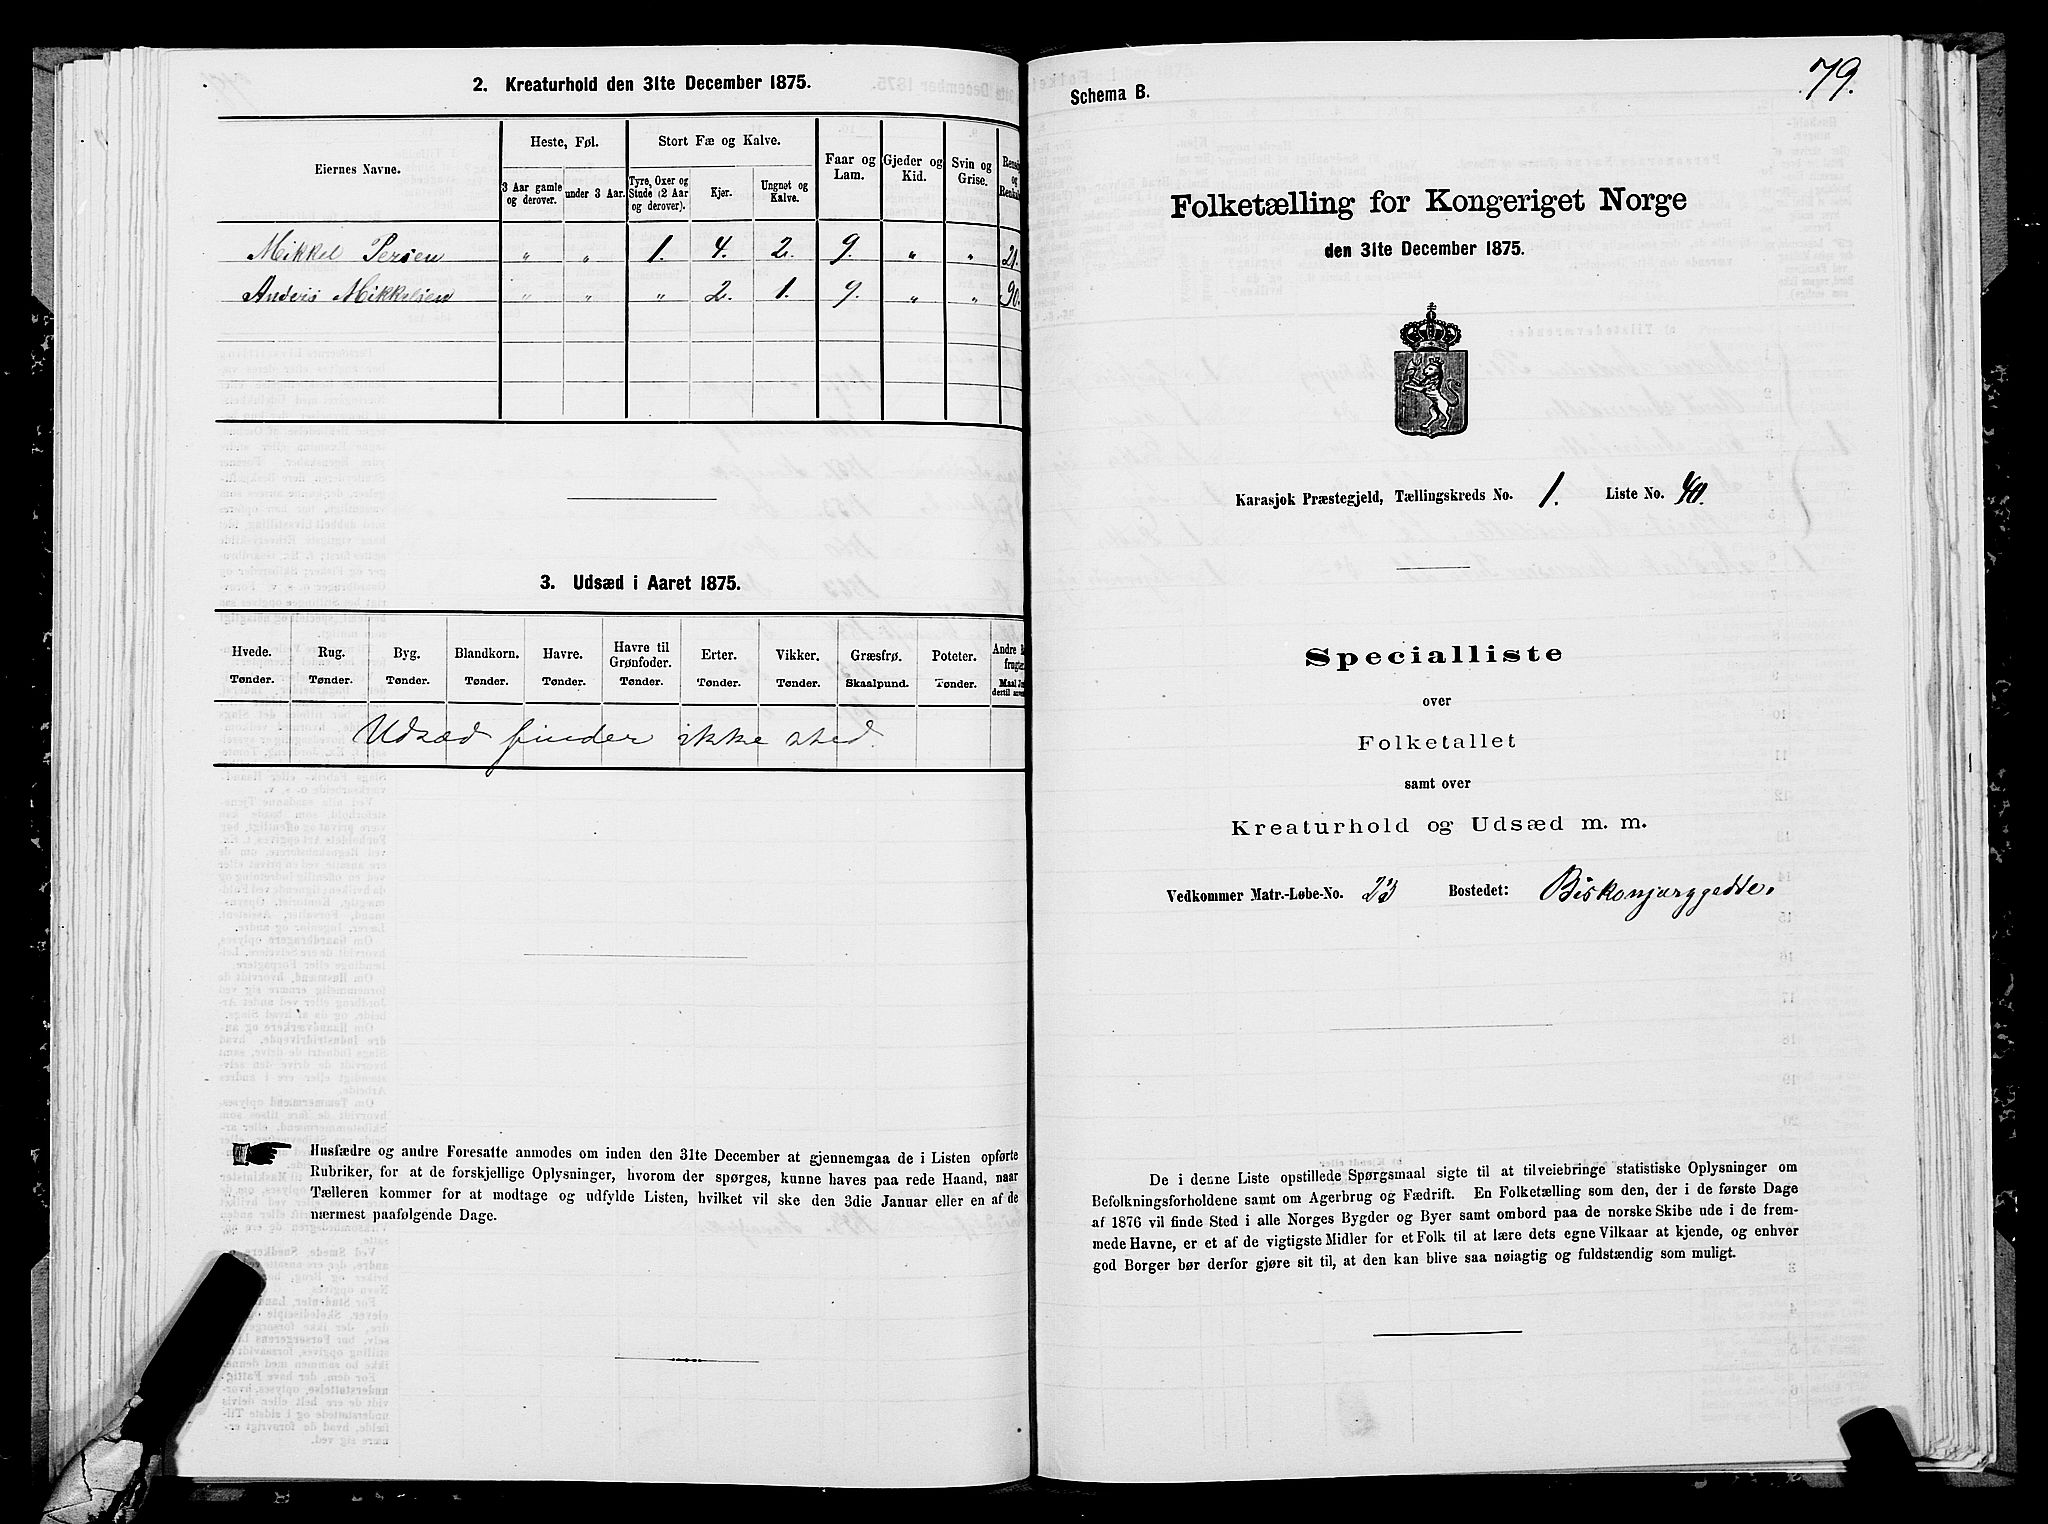 2. Kreaturhold den 31te December 1875.
Eiernes Navne.
Heste, Føl.
Stort Fæ og Kalve.
Faar og Lam.
Gjeder og Kid.
Svin og Grise.
3 Aar gamle og derover.
under 3 Aar.
Tyre, Oxer og Stude (2 Aar og derover).
Kjør.
Ungnøt og Kalve.
Mikkel Persen " " 1. 4. 2. 9. " " 21.
Anders Mikkelsen " " " 2. 1. 9. " " 90.
3. Udsæd i Aaret 1875.
Hvede. Rug. Byg. Blandkorn. Havre. Havre til Grønfoder. Erter. Vikker. Græsfrø. Poteter.
Tønder. Tønder. Tønder. Tønder. Tønder. Tønder. Tønder. Tønder. Skaalpund. Tønder.
Udsæd finder ikke sted.
Husfædre og andre Foresatte anmodes om inden den 31te December at gjennemgaa de i Listen opførte
Rubriker, for at de forskjellige Oplysninger, hvorom der spørges, kunne haves paa rede Haand, naar
Tælleren kommer for at modtage og udfylde Listen, hvilket vil ske den 3die Januar eller en af de
nærmest paafølgende Dage.
79.
Schema B.
Folketælling for Kongeriget Norge
den 31te December 1875.
Karasjok Præstegjeld, Tællingskreds No. 1. Liste No. 40.
Specialliste
over
Folketallet
samt over
Kreaturhold og Udsæd m. m.
Vedkommer Matr.-Løbe-No. 23 Bostedet: Biskonjarggedde.
De i denne Liste opstillede Spørgsmaal sigte til at tilveiebringe statistiske Oplysninger om
Befolkningsforholdene samt om Agerbrug og Fædrift. En Folketælling som den, der i de første Dage
af 1876 vil finde Sted i alle Norges Bygder og Byer samt ombord paa de norske Skibe ude i de frem-
mede Havne, er et af de vigtigste Midler for et Folk til at lære dets egne Vilkaar at kjende, og enhver
god Borger bør derfor gjøre sit til, at den kan blive saa nøiagtig og fuldstændig som muligt.